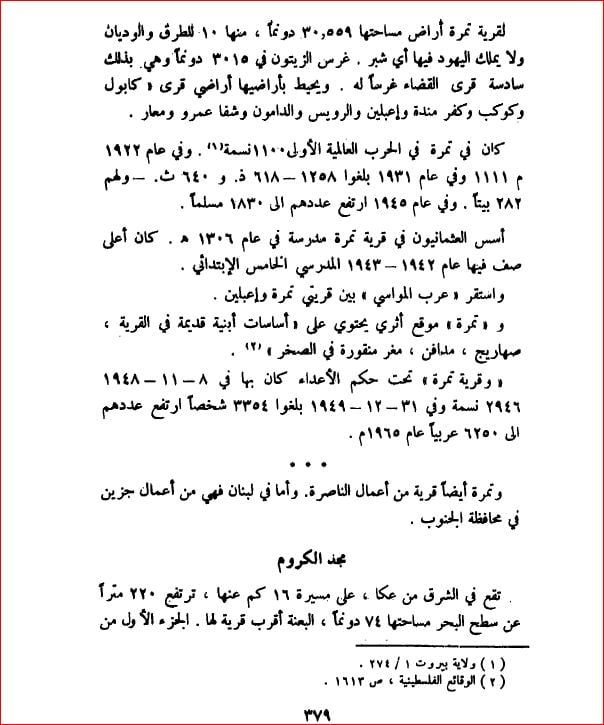 لقرية تمرة أراض مساحتها ٣٠,٥٥٩ دونماً ، منها ١٠ للطرق والوديان
ولا يملك اليهود فيها أي شبر . غرس الزيتون في ٣٠١٥ دونماً وهي بذلك
سادسة قرى القضاء غرساً له . ويحيط بأراضيها أراضي قرى « كابول
وكوكب وكفر مندة وإعبلين والرويس والدامون وشفا عمرو ومعار .
كان في تمرة في الحرب العالمية الأولى ١١٠٠ نسمة(١) . وفي عام ١٩٢٢
م ١١١١ وفي عام ١٩٣١ بلغوا ١٢٥٨ – ٦١٨ ذ. و ٦٤٠ ث. – ولهم
٢٨٢ بيتاً . وفي عام ١٩٤٥ ارتفع عددهم الى ١٨٣٠ مسلماً .
أسس العثمانيون في قرية تمرة مدرسة في عام ١٣٠٦ هـ . كان أعلى
صف فيها عام ١٩٤٢ – ١٩٤٣ المدرسي الخامس الإبتدائي .
واستقر « عرب المواسي » بين قريتي تمرة وإعبلين .
و « تمرة » موقع أثري يحتوي على « أساسات أبنية قديمة في القرية ،
صهاريج ، مدافن ، مغر منقورة في الصخر » (٢) .
« وقرية تمرة » تحت حكم الأعداء كان بها في ٨ – ١١ – ١٩٤٨
٢٩٤٦ نسمة وفي ٣١ – ١٢ – ١٩٤٩ بلغوا ٣٣٥٤ شخصاً ارتفع عددهم
الى ٦٢٥٠ عربياً عام ١٩٦٥م .
• • •
وتمرة أيضاً قرية من أعمال الناصرة. وأما في لبنان فهي من أعمال جزين
في محافظة الجنوب .
مجد الكروم
تقع في الشرق من عكا ، على مسيرة ١٦ كم عنها ، ترتفع ٢٢٠ متراً
عن سطح البحر مساحتها ٧٤ دونماً ، البعنة أقرب قرية لها . الجزء الأول من
( ١ ) ولاية بيروت ١ / ٢٧٤ .
( ٢ ) الوقائع الفلسطينية ، ص ١٦١٣ .
٣٧٩